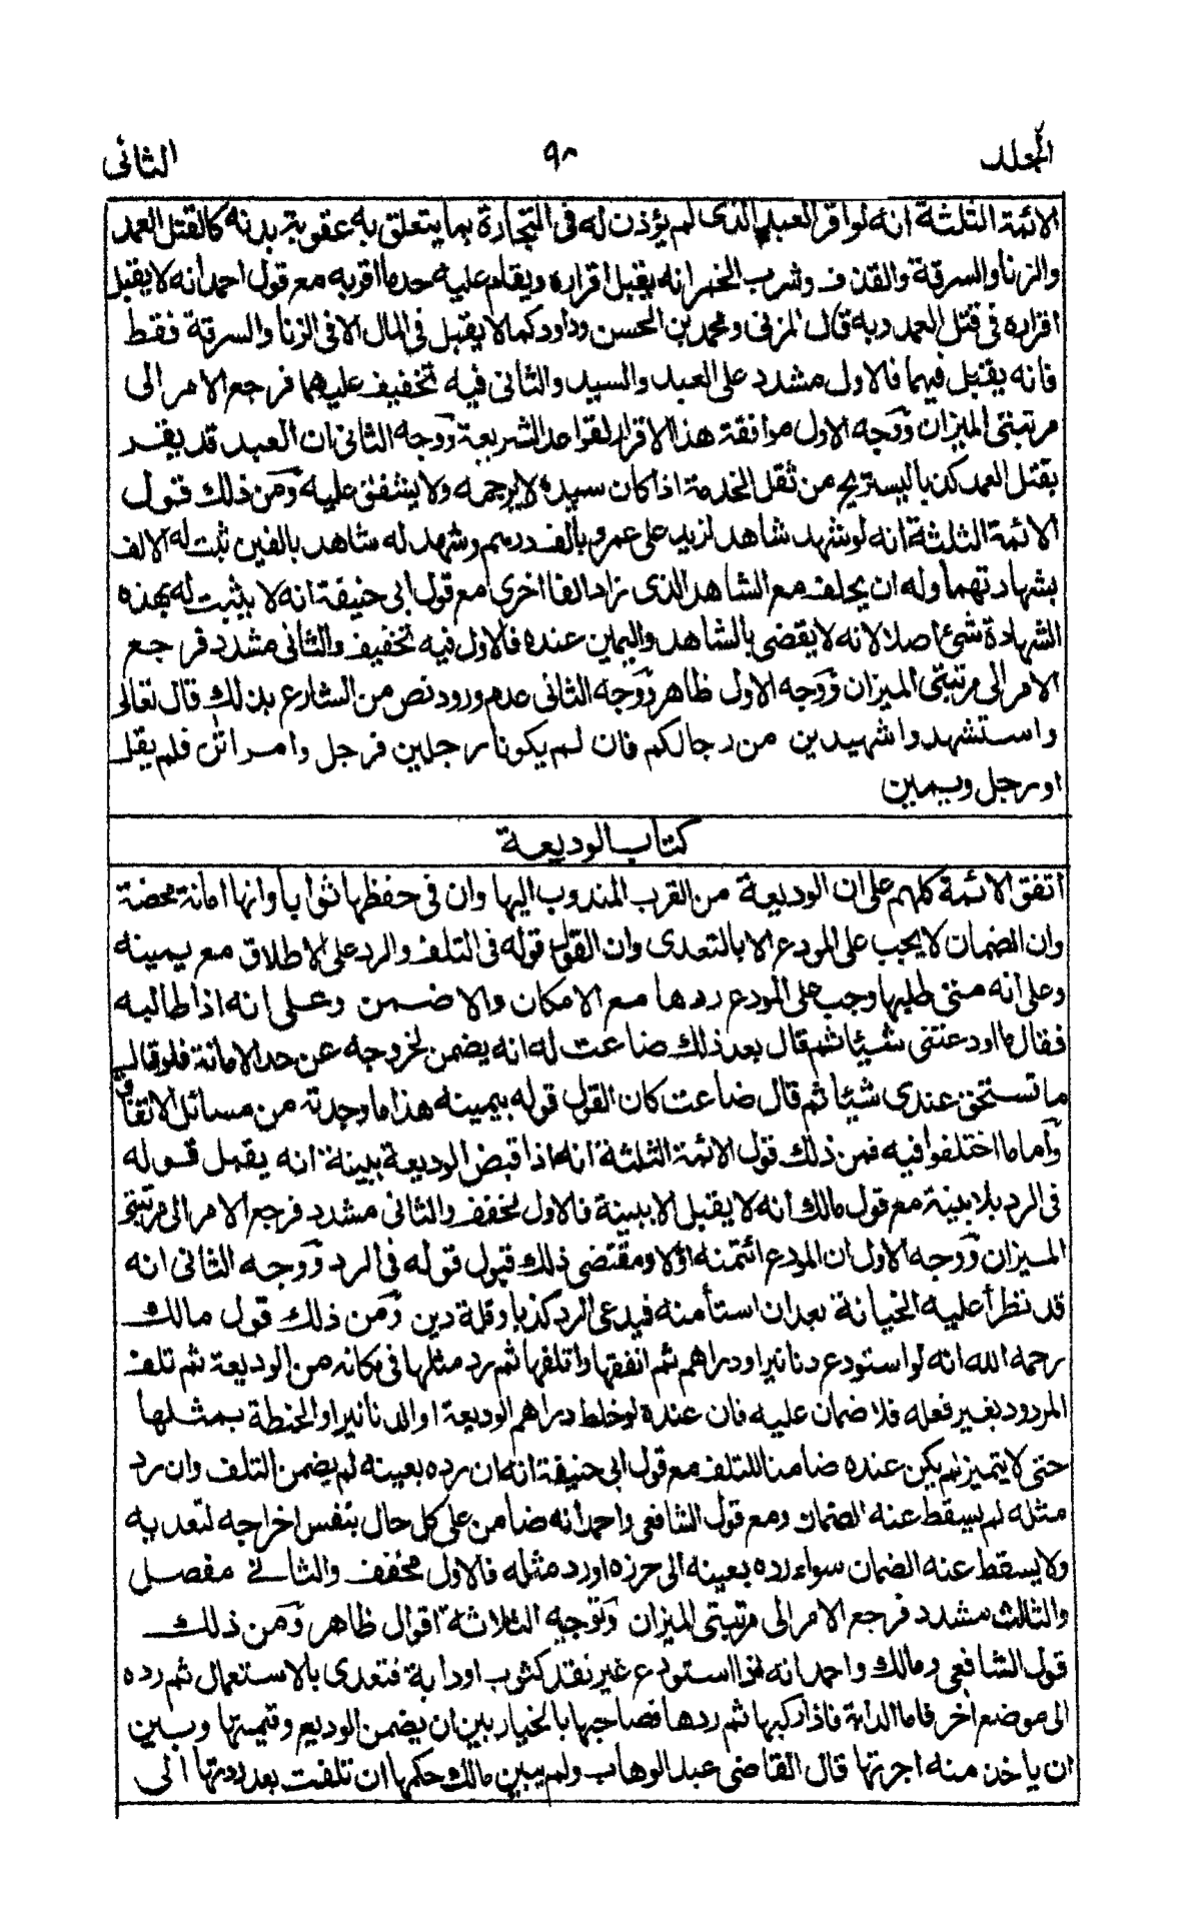 المجلد ٩٠ الثانى
الائمة الثلثة انه لو اقر العبد الذى لم يؤذن له فى التجارة بما يتعلق به عقوبة بدنه كالقتل العمد
والزنا والسرقة والقذف وشرب الخمر انه يقبل اقراره ويقام عليه حد ما اقر به مع قول احمد انه لا يقبل
اقراره فى قتل العمد وبه قال المزنى ومحمد بن الحسن وداود كما لا يقبل فى المال الا فى الزنا والسرقة فقط
فانه يقبل فيهما فالاول مشدد على العبد والسيد والثانى فيه تخفيف عليهما فرجع الامر الى
مرتبتى الميزان ووجه الاول موافقة هذا الاقرار لقواعد الشريعة ووجه الثانى ان العبد قد يقر
بقتل العمد كذبا ليستريح من ثقل الخدمة اذا كان سيده لا يرحمه ولا يشفق عليه ومن ذلك قول
الائمة الثلثة انه لو شهد شاهد لزيد على عمرو بالف درهم وشهد له شاهد بالفين ثبت له الالف
بشهادتهما وله ان يحلف مع الشاهد الذى زاد الفا اخرى مع قول ابى حنيفة انه لا يثبت له بهذه
الشهادة شئ اصلا لانه لا يقضى بالشاهد واليمين عنده فالاول فيه تخفيف والثانى مشدد فرجع
الامر الى مرتبتى الميزان ووجه الاول ظاهر ووجه الثانى عدم ورود نص من الشارع بذلك قال تعالى
واستشهدوا شهيدين من رجالكم فان لم يكونا رجلين فرجل وامراتن فلم يقل
او رجل ويمين
كتاب الوديعة
اتفق الائمة كلهم على ان الوديعة من القرب المندوب اليها وان فى حفظها ثوابا وانها امانة محضة
وان الضمان لا يجب على المودع الا بالتعدى وان القول قوله فى التلف والرد على الاطلاق مع يمينه
وعلى انه متى طلبها وجب على المودع ردها مع الامكان والا ضمن وعلى انه اذا طالبه
فقال ما اودعتنى شيئا ثم قال بعد ذلك ضاعت له انه يضمن لخروجه عن حد الامانة فلو قال
ما تستحق عندى شيئا ثم قال ضاعت كان القول قوله بيمينه هذا ما وجدته من مسائل الاتفاق
وأما ما اختلفوا فيه فمن ذلك قول الائمة الثلثة انه اذا قبض الوديعة ببينة انه يقبل قوله
فى الرد بلا بينة مع قول مالك انه لا يقبل الا ببينة فالاول مخفف والثانى مشدد فرجع الامر الى مرتبتى
الميزان ووجه الاول ان المودع ائتمنه اولا ومقتضى ذلك قبول قوله فى الرد ووجه الثانى انه
قد تطرأ عليه الخيانة بعد ان استأمنه فيدعى الرد كذبا وقلة دين ومن ذلك قول مالك
رحمه الله انه لو استودع دنانير او دراهم ثم انفقها واتلفها ثم رد مثلها فى مكانه من الوديعة ثم تلف
المردود بغير فعله فلا ضمان عليه فان عنده لو خلط دراهم الوديعة او الدنانير او الحنطة بمثلها
حتى لا يتميز لم يكن عنده ضامنا للتلف مع قول ابى حنيفة انه ان رده بعينه لم يضمن التلف وان رد
مثله لم يسقط عنه الضمان ومع قول الشافعى واحمد انه ضامن على كل حال بنفس اخراجه لتعديه
ولا يسقط عنه الضمان سواء رده بعينه الى حرزه او رد مثله فالاول مخفف والثانى مفصل
والثالث مشدد فرجع الامر الى مرتبتى الميزان وتوجيه الثلاثة اقوال ظاهر ومن ذلك
قول الشافعى ومالك واحمد انه لو استودع غير نقد كثوب او دابة فتعدى بالاستعمال ثم رده
الى موضع اخر فاما الدابة فاذا ركبها ثم ردها فصاحبها بالخيار بين ان يضمن الوديع وقيمتها وبين
ان ياخذ منه اجرتها قال القاضى عبد الوهاب ولم يبين مالك حكمها ان تلفت بعد ردها الى